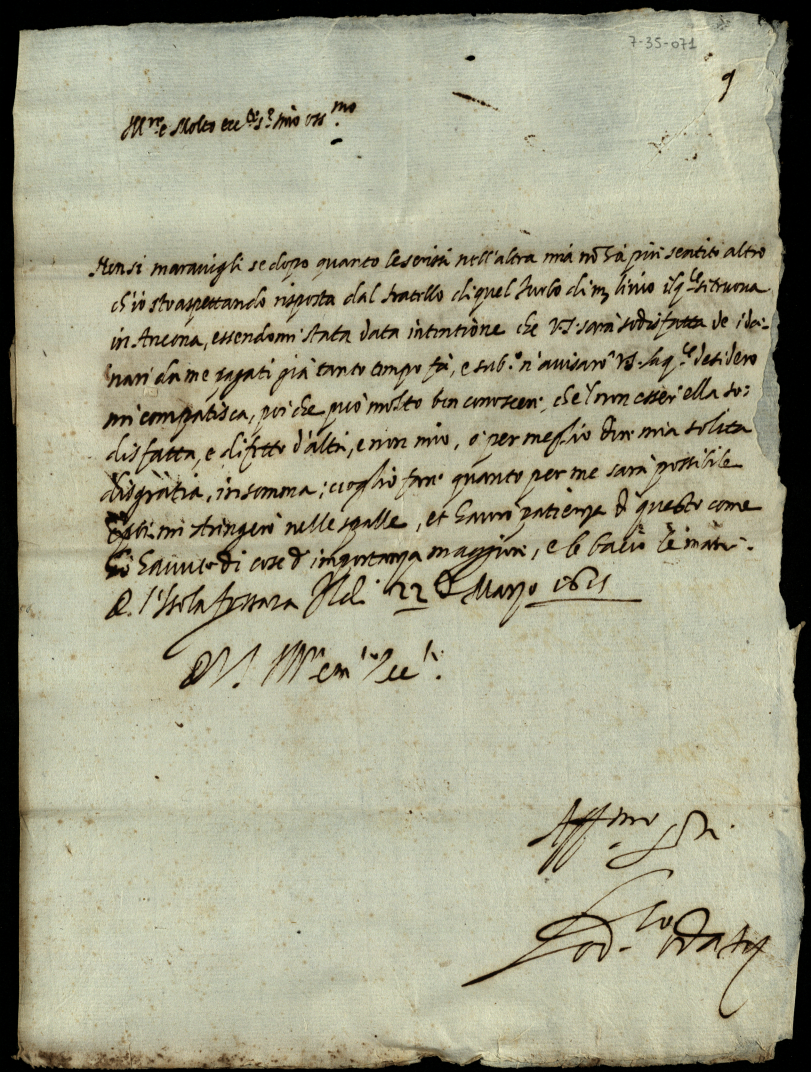 7-35-071
9
Ill.re e Molto ecc.te s.r mio oss.mo
Non si maravigli se dopo quanto le scrissi nell'altra mia nõ hà più sentito altro
ch'io stò aspettando risposta dal fratello di quel furbo di m. livio il q.le si truova
in Ancona, essendomi stata data intentione che VS. sarà sodisfatta de i da:
nari da me pagati già tanto tempo fà, e sub.o n'avisarò VS. la q.le desidero
mi compatisca, poi che può molto ben conoscere, che l'non esser ella so:
disfatta, e difetto d'altri, e non mio, ò per meglio dire mia solita
disgratia, in somma i voglio fare quanto per me sarà possibile
e poi mi stringerò nelle spalle, et havrò patienza di questo come
hò havuto di cose d'importanza maggiore, e le bacio le mani.
D. l'Isola fossara Il dì 22 di Marzo 1621
D V. Ill.re em.to Ecc.te
Aff.mo
Lod.co